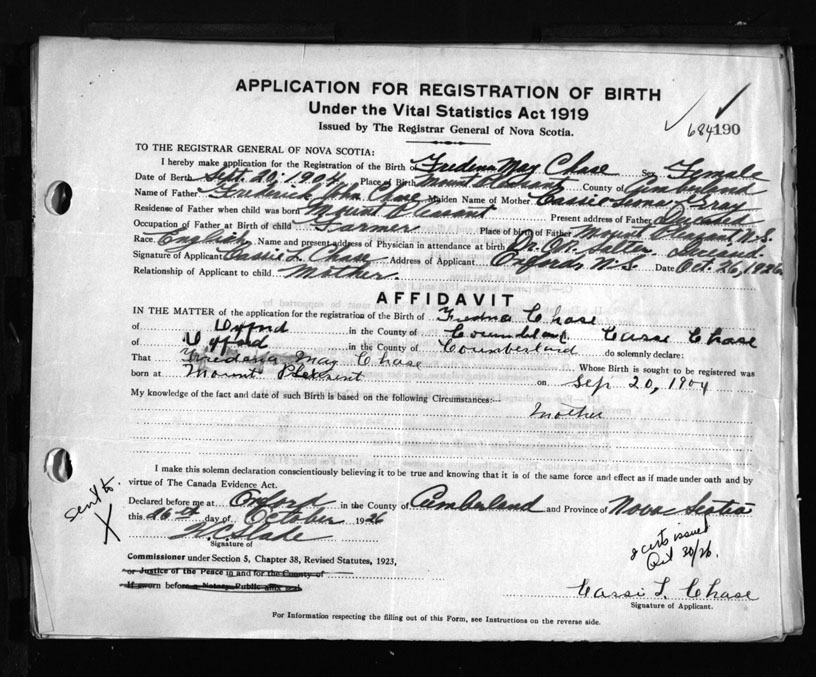 APPLICATION FOR REGISTRATION OF BIRTH
Under the Vital Statistics Act 1919
Issued by The Registrar General of Nova Scotia.
684190
TO THE REGISTRAR GENERAL OF NOVA SCOTIA:
I hereby make application for the Registration of the Birth of May Chase Sex Female
Date of Birth Sept. 20, 1904 Place of Birth Mount Pleasant County of Cumberland
Name of Father Frederick John Chase Maiden Name of Mother Cassie Leona Gray
Residense of Father when child was born Mount Pleasant Present address of Father Deceased
Occupation of Father at Birth of child Farmer Place of birth of Father Mount Pleasant N.S.
Race English Name and present address of Physician in attendance at birth Dr. Salter
Signature of Applicant Cassie L. Chase Address of Applicant Oxford, N.S. Date Oct. 26, 1926
Relationship of Applicant to child Mother.
AFFIDAVIT
IN THE MATTER of the application for the registration of the Birth of Chase
of Oxford in the County of Cassie Chase
of Oxford in the County of Coumberland do solemnly declare:
That May Chase Whose Birth is sought to be registered was
born at Mount on Sep 20, 1904
My knowledge of the fact and date of such Birth is based on the following Circumstances:
Mother
I make this solemn declaration conscientiously believing it to be true and knowing that it is of the same force and effect as if made under oath and by
virtue of The Canada Evidence Act.
sent to X
Declared before me at Oxford in the County of Cumberland and Province of Nova Scotia
this 26th day of October 1926
W.C. Slade
Signature of
Commissioner under Section 5, Chapter 38, Revised Statutes, 1923,
or Justice of the Peace in and for the County of
If sworn before a Notary Public affix seal
certs issued
Oct 30/26.
Cassi L. Chase
Signature of Applicant.
For Information respecting the filling out of this Form, see Instructions on the reverse side.